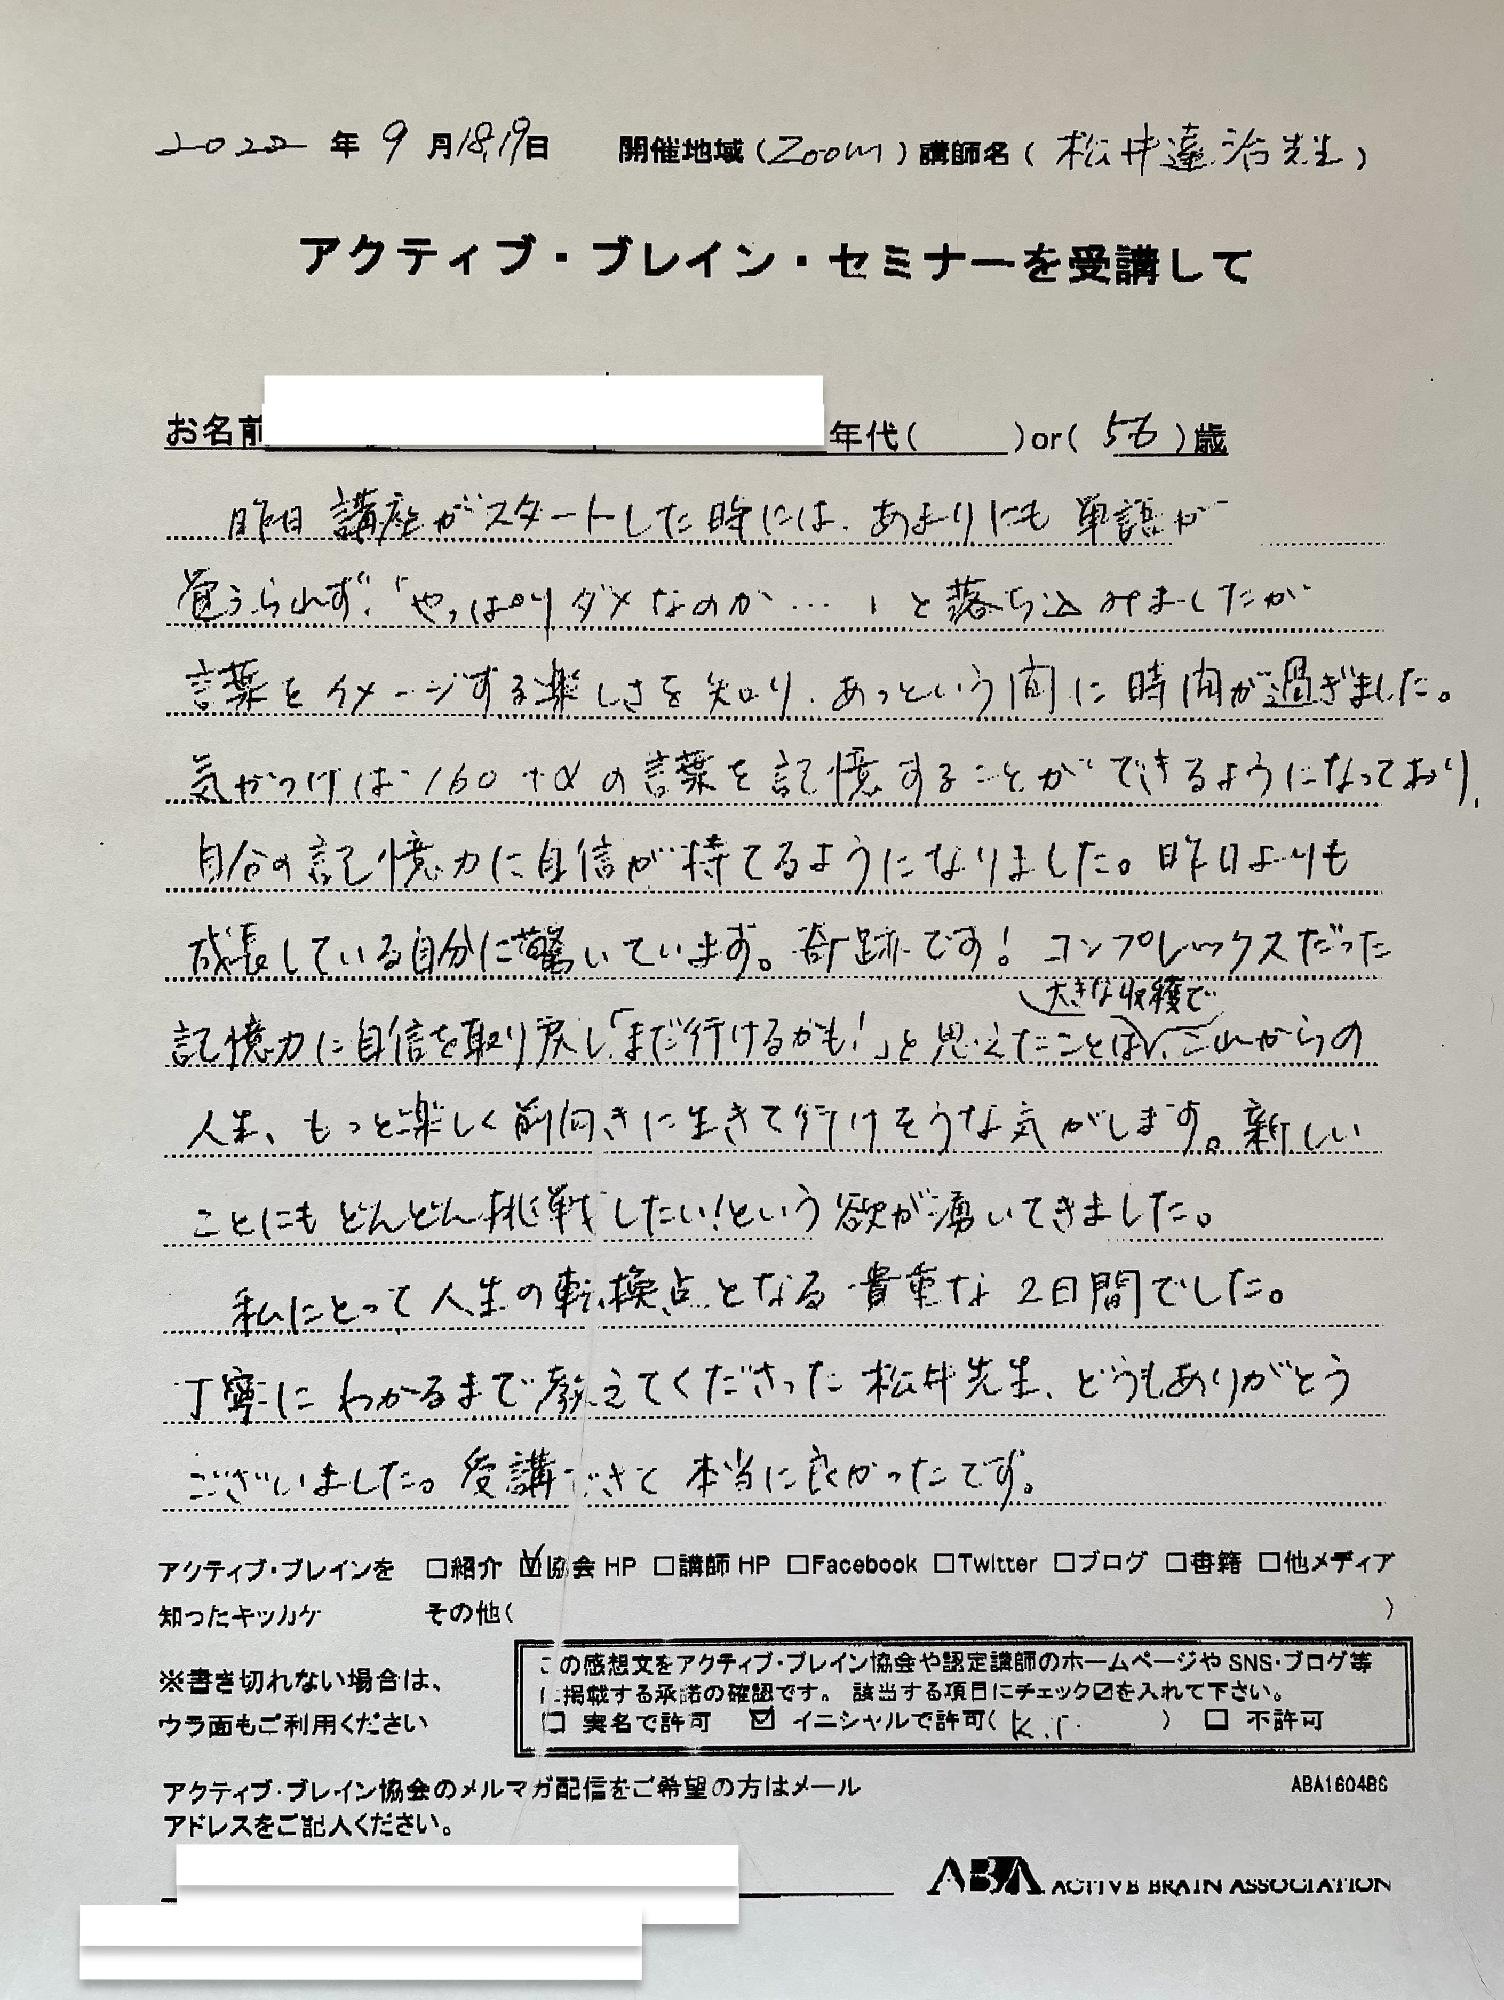 2022年9月18,19日 開催地域(Zoom)講師名(松井達治先生)
アクティブ・ブレイン・セミナーを受講して
お名前 年代( )or(56)歳
昨日講座がスタートした時には、あまりにも単語が
覚えられず、「やっぱりダメなのか…」と落ち込みましたが
言葉をイメージする楽しさを知り、あっという間に時間が過ぎました。
気がつけば160+αの言葉を記憶することができるようになっており、
自分の記憶力に自信が持てるようになりました。昨日よりも
成長している自分に驚いています。奇跡です!コンプレックスだった
大きな収穫で
記憶力に自信を取り戻し「まだ行けるかも!」と思えたことは、これからの
人生、もっと楽しく前向きに生きて行けそうな気がします。新しい
ことにもどんどん挑戦したい!という欲が湧いてきました。
私にとって人生の転換点となる貴重な2日間でした。
丁寧にわかるまで教えてくださった松井先生、どうもありがとう
ございました。受講できて本当に良かったです。
アクティブ・ブレインを □紹介 ☑協会HP □講師HP □Facebook □Twitter □ブログ □書籍 □他メディア
知ったキッカケ その他( )
※書き切れない場合は、
ウラ面もご利用ください
この感想文をアクティブ・ブレイン協会や認定講師のホームページやSNS・ブログ等
に掲載する承諾の確認です。該当する項目にチェック☑を入れて下さい。
□ 実名で許可 ☑ イニシャルで許可(K.T. ) □ 不許可
アクティブ・ブレイン協会のメルマガ配信をご希望の方はメール
アドレスをご記入ください。
ABA1604BS
ABA ACTIVE BRAIN ASSOCIATION